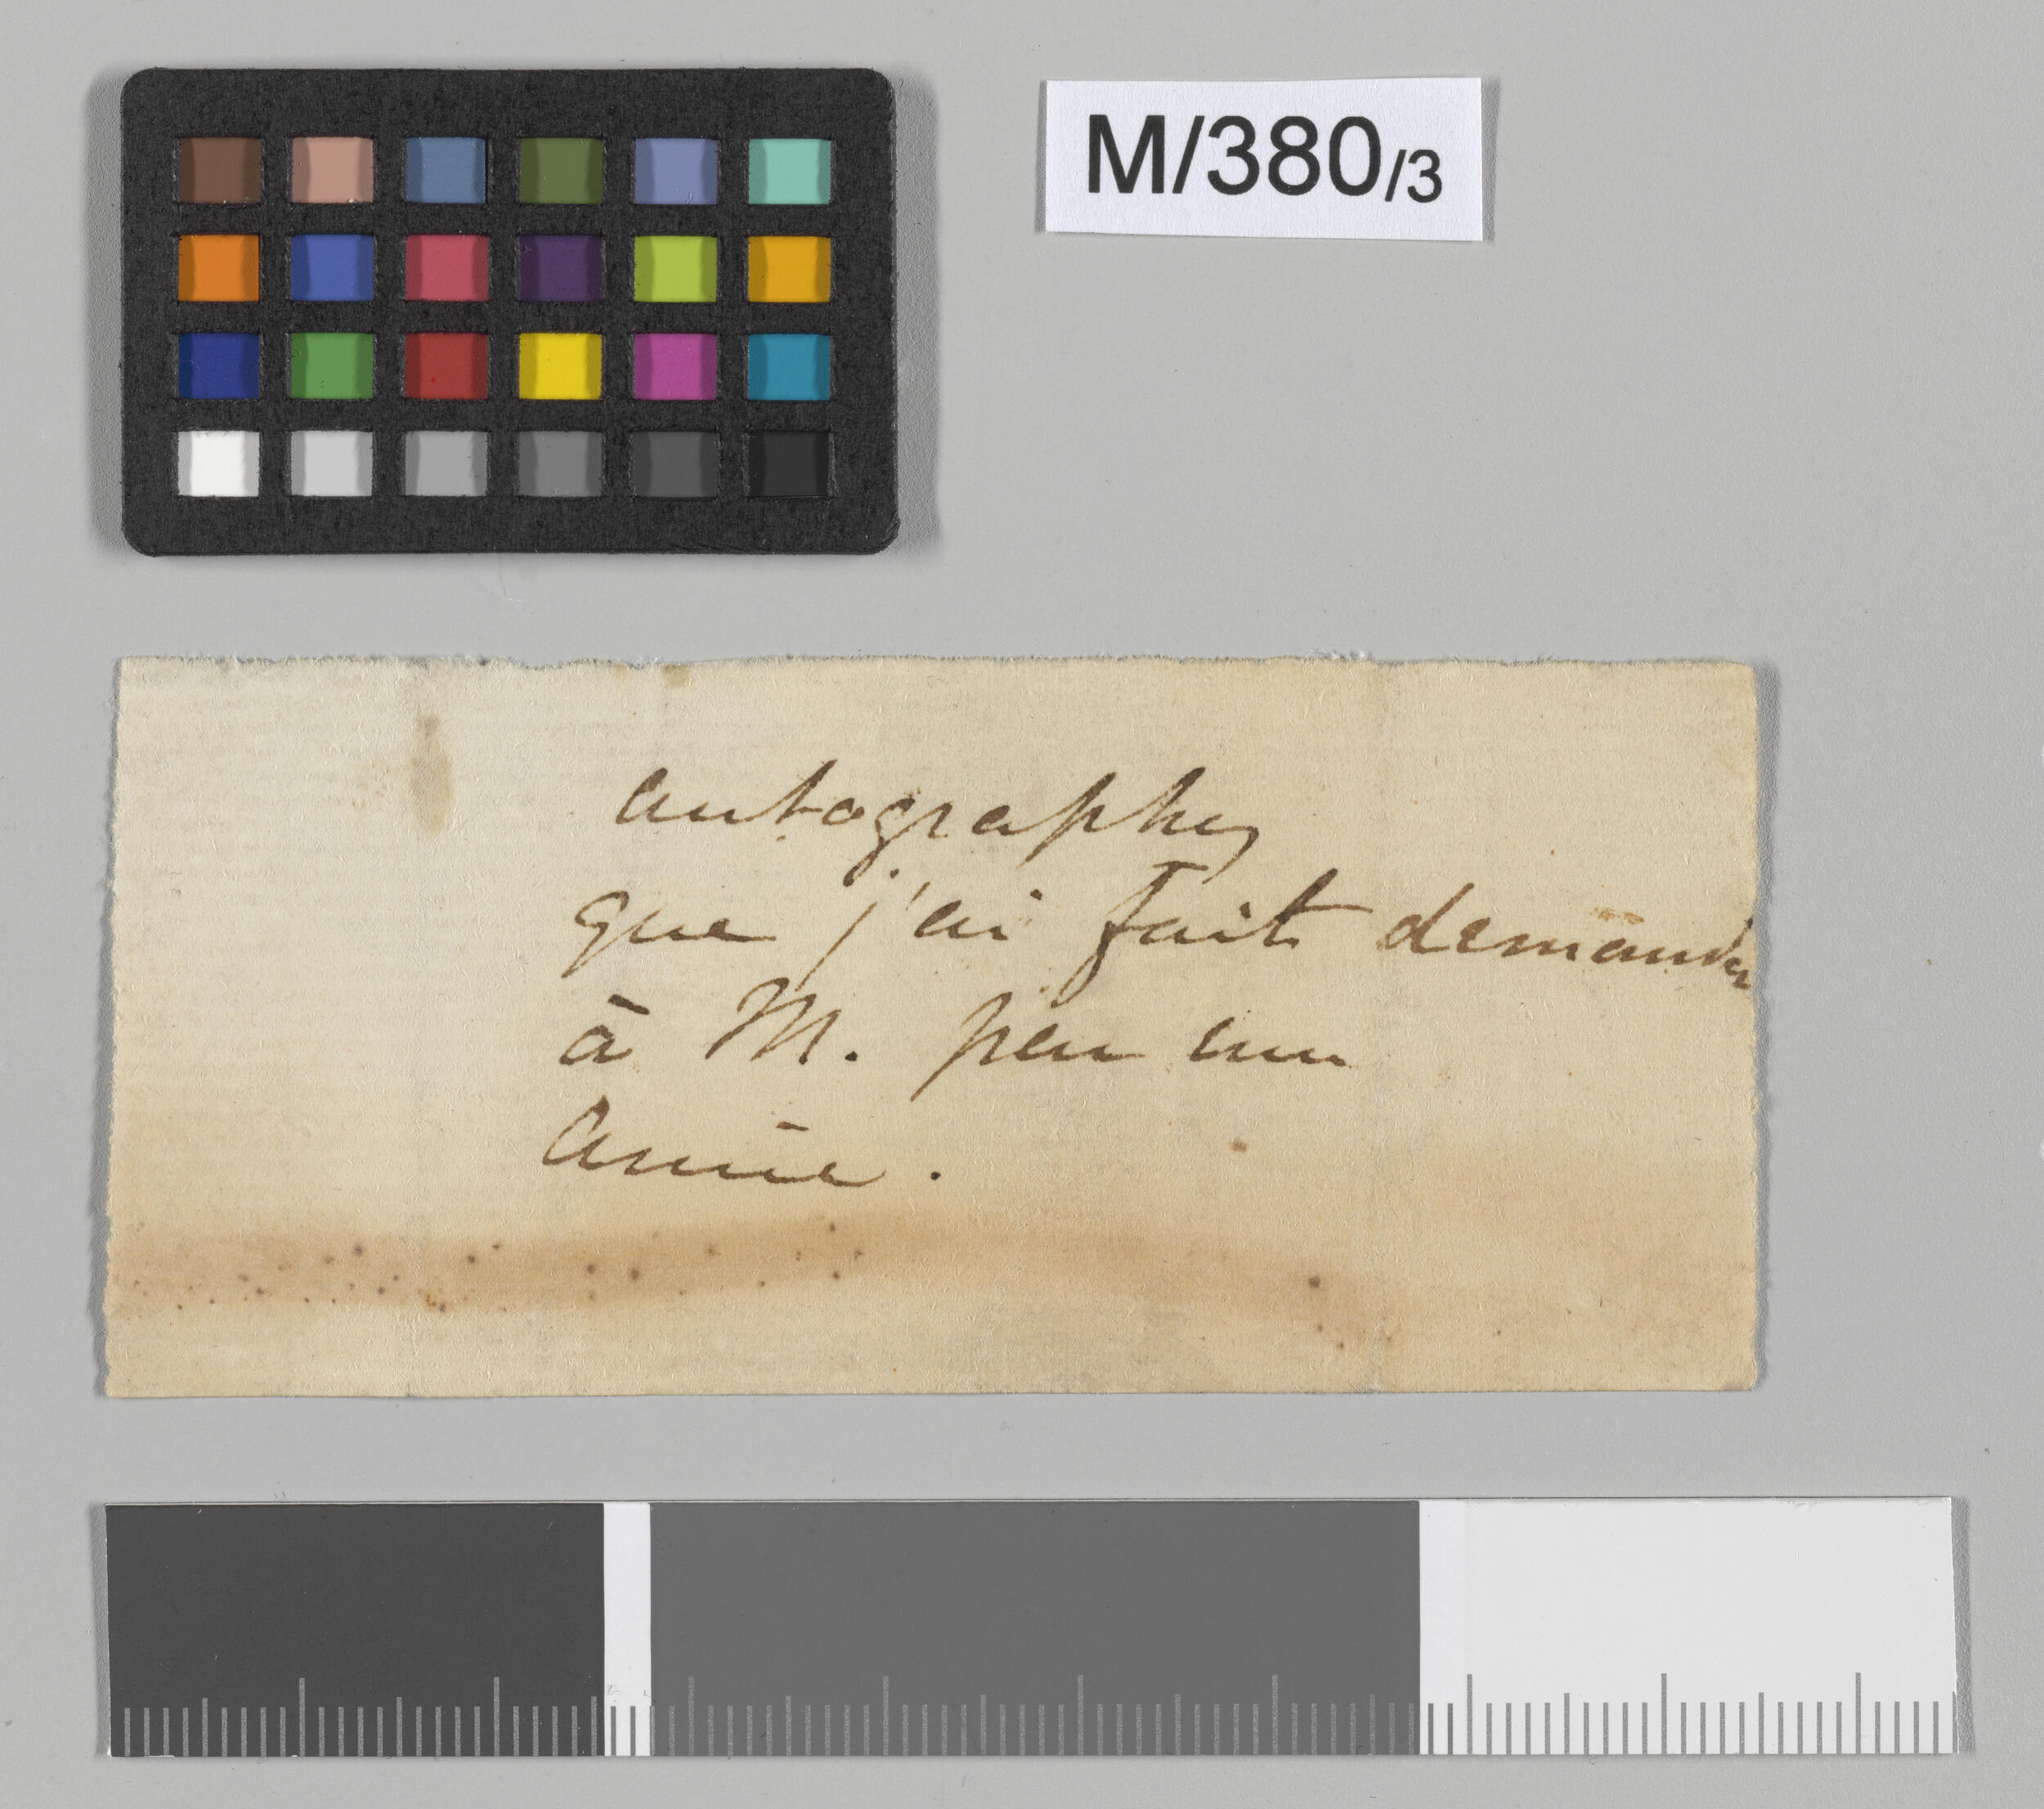 M/380/3
autographes
que j'ai fait demander
à M. par une
amie.